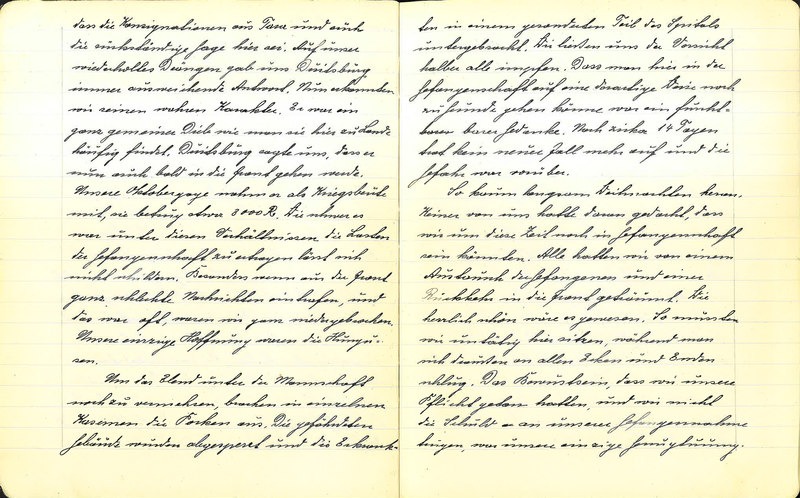 dass die Konsignationen aus Taxa und auch
die rückständige Gage hier sei. Auf unser
wiederholtes Drängen gab uns Duitsburg
immer ausweichende Antwort. Nun erkannten
wir seinen wahren Karakter. Er war ein
ganz gemeiner Dieb wie man sie hier zu Lande
häufig findet. Duitsburg sagte uns, dass er
nun auch bald in die Front gehen werde.
Unsere Oktobergage nahm er als Kriegsbeute
mit, sie betrug etwa 3000 R. Wie schwer es
war unter diesen Verhältnissen die Lasten
der Gefangenschaft zu ertragen lässt sich
nicht schildern. Besonders wenn aus der Front
ganz schlechte Nachrichten eintrafen, und
das war oft, waren wir ganz niedergebrochen.
Unsere einzige Hoffnung waren die Hungu-
sen.
Um das Elend unter der Mannschaft
noch zu vermehren, brachen in einzelnen
Kasernen die Pocken aus. Die gefährdeten
Gebäude wurden abgesperrt und die Erkrank-
ten in einem gesonderten Teil des Spitals
untergebracht. Wir liesten uns der Vorsicht
halber alle impfen. Dass man hier in der
Gefangenschaft auf eine derartige Weise noch
zu Grunde gehen könne war ein furcht-
barer Gedanke. Nach zirka 14 Tagen
trat kein neuer Fall mehr auf und die
Gefahr war vorüber.
So kam langsam Weihnachten heran.
Keiner von uns hatte daran gedacht, dass
wir um diese Zeit noch in Gefangenschaft
sein könnten. Alle hatten wir von einem
Austausch der Gefangenen und einer
Rückkehr in die Front geträumt. Wie
herrlich schön wäre es gewesen. So mussten
wir untätig hier sitzen, während man
sich draussen an allen Ecken und Enden
schlug. Das Bewustsein, dass wir unsere
Pflicht getan hatten, und wir nicht
die Schuld an unserer Gefangennahme
trugen, war unsere einzige Genugtuung.